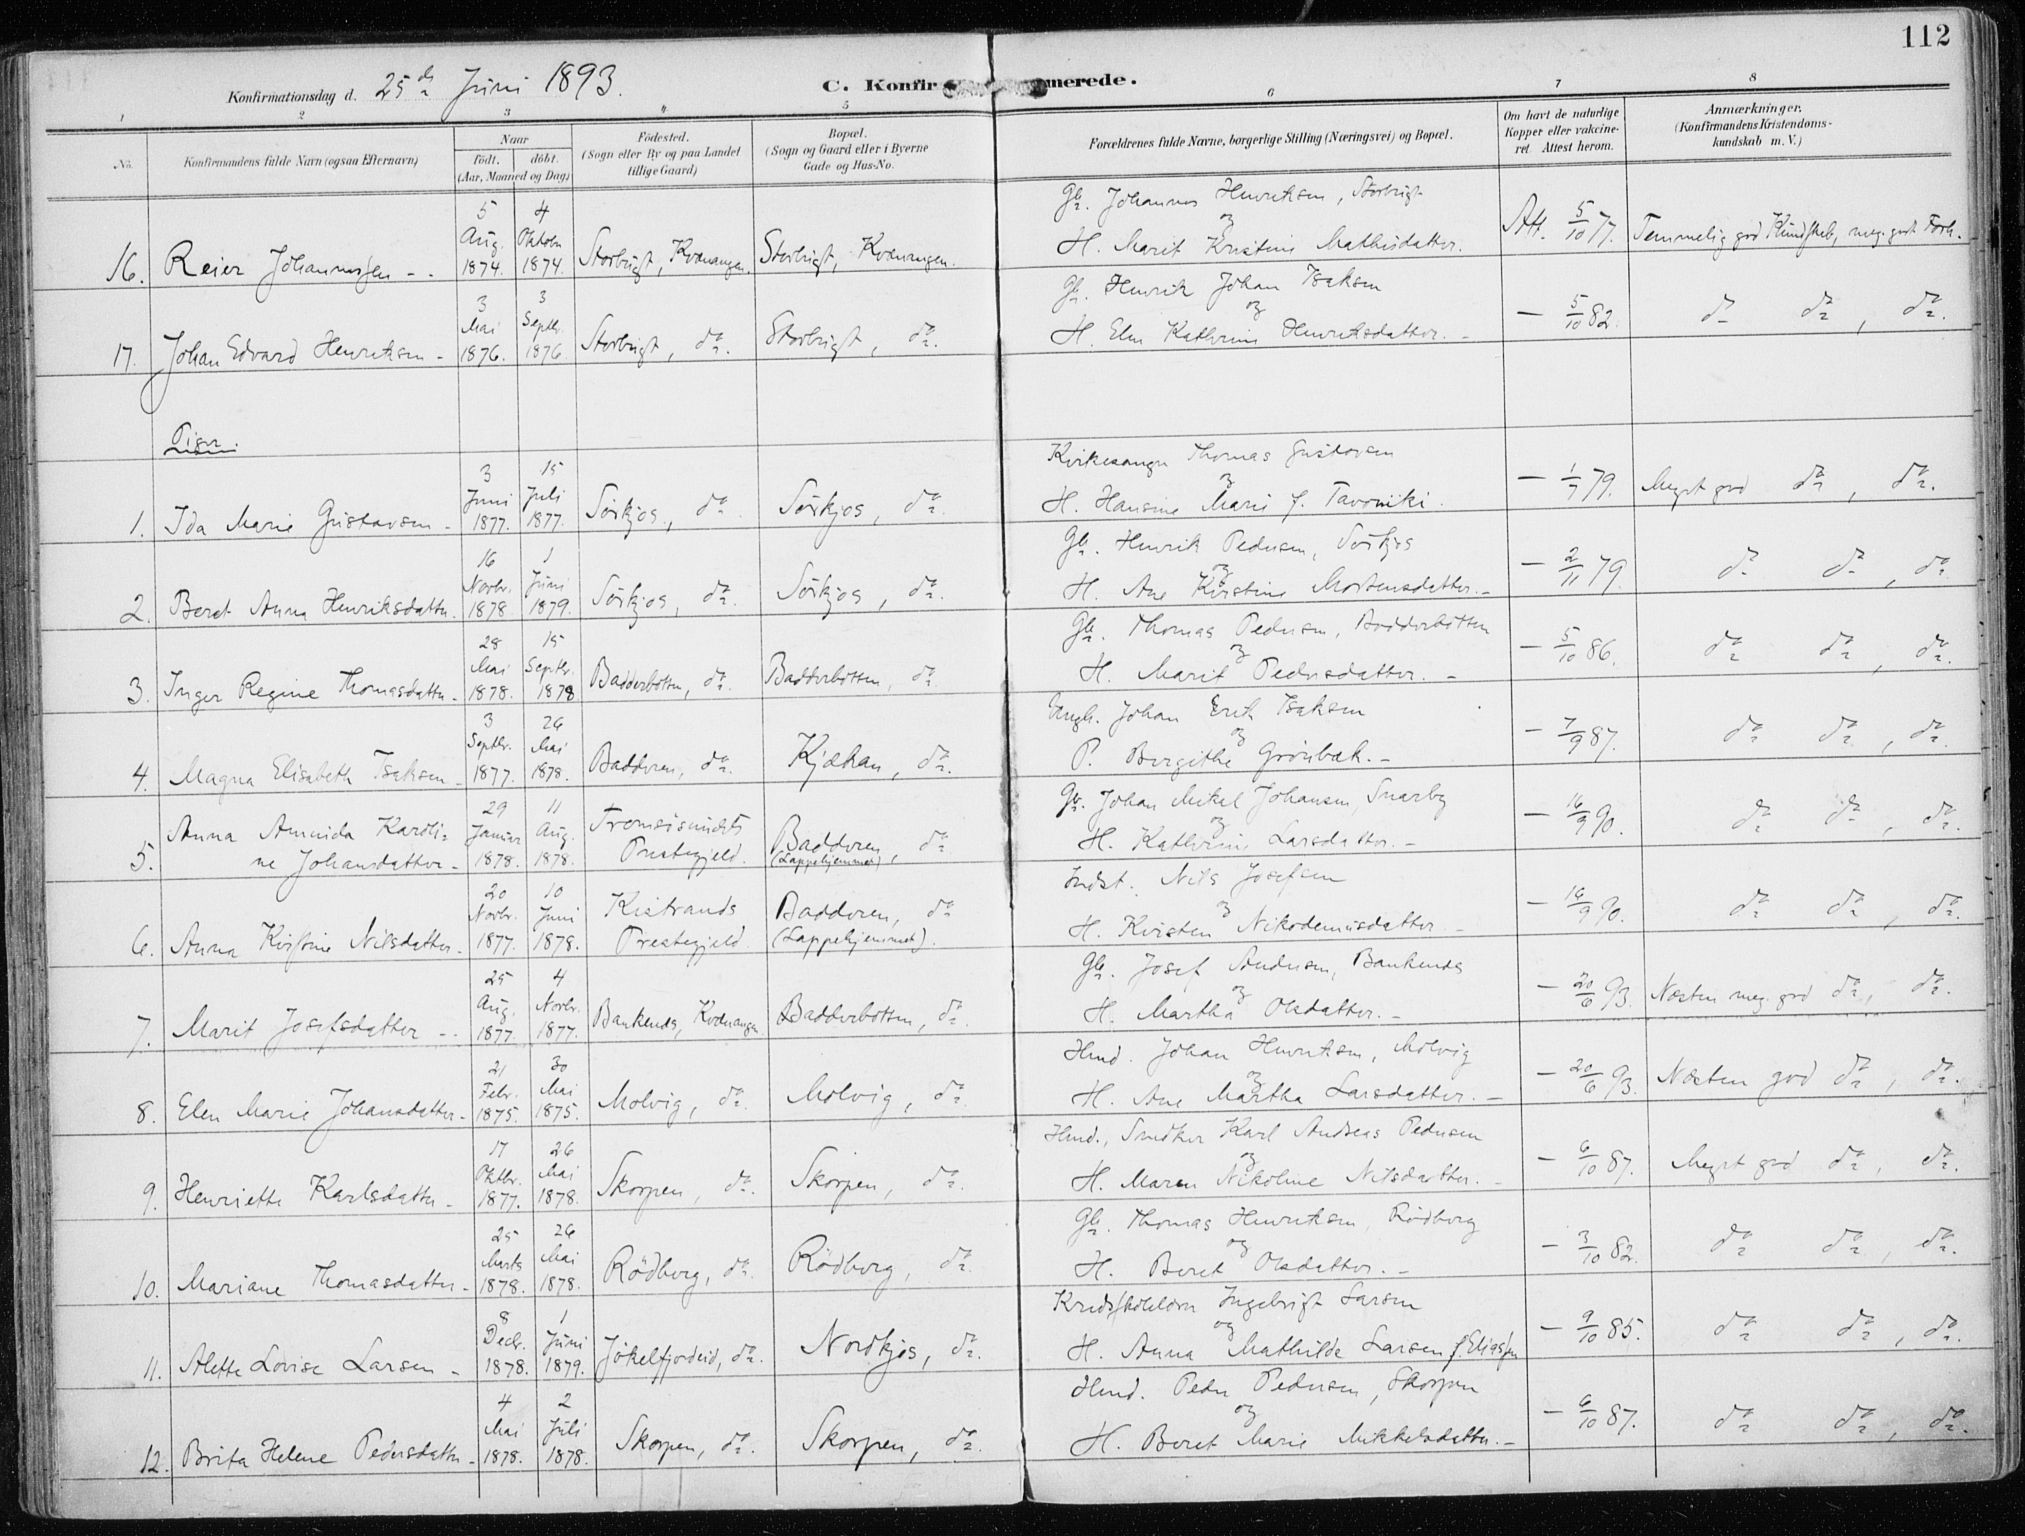 112
Konfirmationsdag d. 25de Juni 1893.
C. Konfirmerede.
1 2 3 4 5 6 7 8
No. Konfirmandens fulde Navn (ogsaa Efternavn) Naar født. døbt. (Aar, Maaned og Dag)
Fødested. (Sogn eller By og paa Landet tillige Gaard)
Bopæl. (Sogn og Gaard eller i Byerne Gade og Hus-No.
Forældrenes fulde Navne, borgerlige Stilling (Næringsvei) og Bopæl.
Om havt de naturlige Kopper eller vakcineret. Attest herom.
Anmærkninger. (Konfirmandens Kristendomskundskab m. V.)
16. Reier Johannesen - - 5 Aug. 1874. 4 Oktober 1874. Storbugt, Kvænangen. Storbugt, Kvænangen. Gb. Johannes Henriksen, Storbugt og H. Marit Kristine Mathisdatter. Att. 5/10 77. Temmelig god Kundskab, meg. godt Forh.
17. Johan Edvard Henriksen - 3 Mai 1876. 3 Septbr. 1876. Storbugt, do. Storbugt, do. Gb. Henrik Johan Isaksen og H. Elen Kathrine Henriksdatter. - — 5/10 82. do do, do.
Piger.
1. Ida Marie Gustavsen - 3 Juni 1877. 15 Juli 1877. Sørkjos, do Sørkjos, do. Kirkesanger Thomas Gustavsen og H. Hansine Marie f. Tavoniki. — 1/7 79. Meget god do, do.
2. Beret Anna Henriksdatter. 16 Novbr. 1878. 1 Juni 1879. Sørkjos, do. Sørkjos, do. Gb. Henrik Pedersen, Sørkjos og H. Ane Kirstine Mortensdatter. - — 2/11 79. do do, do
3. Inger Regine Thomasdatter - 28 Mai 1878. 15 Septbr. 1878 Badderbotten, do. Badderbotten, do. Gb. Thomas Pedersen, Badderbotten og H. Marit Pedersdatter. - — 5/10 86. do do, do.
4. Magna Elisabeth Isaksen - 3 Septbr. 1877. 26 Mai 1878. Badderen, do. Kjækan, do. Ungk. Johan Erik Isaksen og P. Bergithe Grønbæk. - — 7/9 87. do do, do.
5. Anna Amunda Karoline Johansdatter - 29 Januar 1878. 11 Aug. 1878. Tromsøsundets Prestegjeld. Badderen, do. (Lappehjemmet) Gb. Johan Mikal Johansen, Snarby og H. Kathrine Larsdatter. - — 16/9 90. do do, do.
6. Anna Kirstine Nilsdatter - 20 Novbr. 1877. 10 Juni 1878. Kistrands Prestegjeld. Badderen, do (Lappehjemmet). Indst. Nils Josefsen og H. Kirsten Nikodemusdatter. - — 16/9 90. do do, do.
7. Marit Josefsdatter - - 25 Aug. 1877. 4 Novbr. 1877. Bankenes, Kvænangen Badderbotten, do. Gb. Josef Andersen, Bankenes og H. Martha Olsdatter. - — 20/6 93. Næsten meg. god do, do.
8. Elen Marie Johansdatter - 21 Febr. 1875. 30 Mai 1875. Molvig, do. Molvig, do. Hmd. Johan Henriksen, Molvig og H. Ane Martha Larsdatter. - — 20/6 93. Næsten god do, do.
9. Henriette Karlsdatter - 17 Oktbr. 1877. 26 Mai 1878. Skorpen, do. Skorpen, do. Hmd., Snedker Karl Andreas Pedersen og H. Maren Nikoline Nilsdatter. - — 6/10 87. Meget god do, do.
10. Mariane Thomasdatter - 25 Marts 1878. 26 Mai 1878. Rødberg, do. Rødberg, do. Gb. Thomas Henriksen, Rødberg og H. Beret Olsdatter. - — 3/10 82. do do, do.
11. Alette Lovise Larsen - 8 Decbr. 1878. 1 Juni 1879. Jøkelfjordeid, do. Nordkjos, do. Kredsskolelærer Ingebrigt Larsen og H. Anna Mathilde Larsen f. Eliassen — 9/10 85. do do, do.
12. Brita Helene Pedersdatter - 4 Mai 1878. 2 Juli 1878. Skorpen, do. Skorpen, do. Hmd. Peder Pedersen, Skorpen og H. Beret Marie Mikkelsdatter. - — 6/10 87. do do, do.